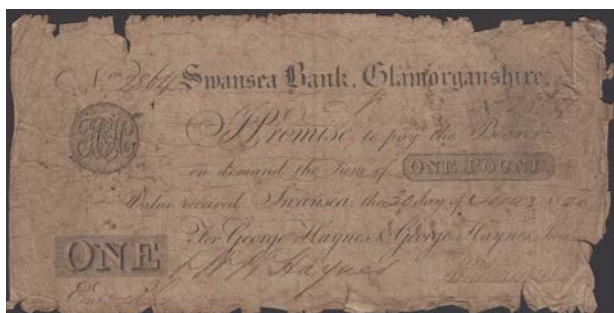 No 2864 Swansea Bank, Glamorganshire,
I Promise to pay the Bearer
on demand the Sum of ONE POUND
Value received Swansea the 20 day of 1820
For George Haynes & George Haynes Junr
ONE
Haynes
Entd